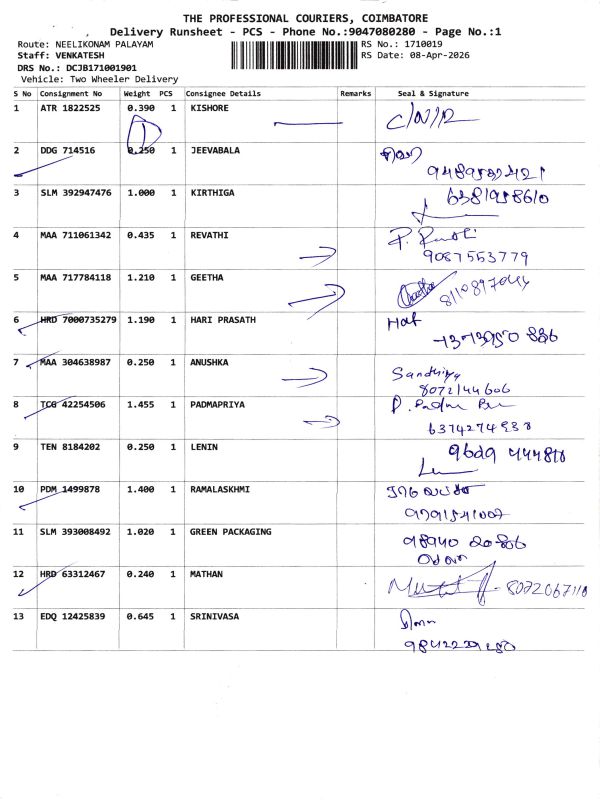 THE PROFESSIONAL COURIERS, COIMBATORE
Delivery Runsheet - PCS - Phone No.:9047080280 - Page No.:1
Route: NEELIKONAM PALAYAM
RS No.: 1710019
Staff: VENKATESH
RS Date: 08-Apr-2026
DRS No.: DCJB171001901
Vehicle: Two Wheeler Delivery
S No Consignment No Weight PCS Consignee Details Remarks Seal & Signature
1 ATR 1822525 0.390 1 KISHORE
2 DDG 714516 0.250 1 JEEVABALA
3 SLM 392947476 1.000 1 KIRTHIGA
4 MAA 711061342 0.435 1 REVATHI
9087553779
5 MAA 717784118 1.210 1 GEETHA
6 HRD 7000735279 1.190 1 HARI PRASATH
7 MAA 304638987 0.250 1 ANUSHKA
Sandhiya
8072144606
8 TCG 42254506 1.455 1 PADMAPRIYA
6374274938
9 TEN 8184202 0.250 1 LENIN
10 PDM 1499878 1.400 1 RAMALASKHMI
11 SLM 393008492 1.020 1 GREEN PACKAGING
12 HRD 63312467 0.240 1 MATHAN
8072067110
13 EDQ 12425839 0.645 1 SRINIVASA